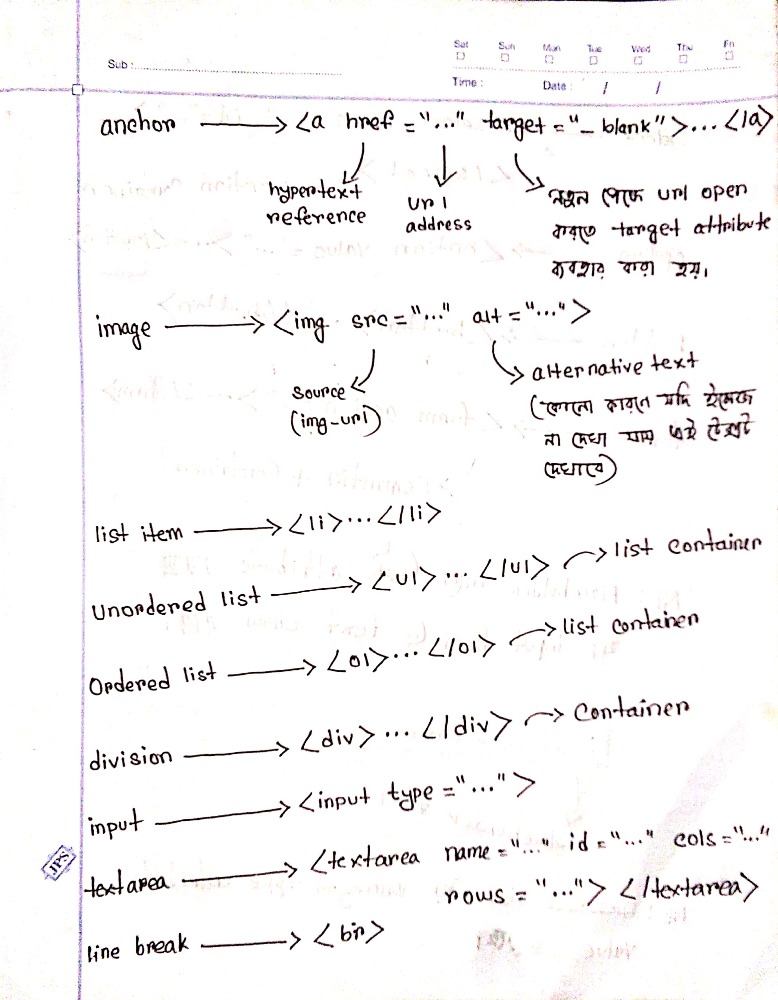 Sub :
Sat Sun Mon Tue Wed Thu Fri
Time : Date : / /
anchor → <a href = "..." target = "_blank" >... </a>
hypertext reference
url address
নতুন পেজে url open
করতে target attribute
ব্যবহার করা হয়।
image → <img src = "..." alt = "..." >
source
(img-url)
alternative text
(কোনো কারনে যদি ইমেজ
না দেখা যায় এই টেক্সট
দেখাবে)
list item → <li>...</li>
Unordered list → <ul> ... </ul> → list container
Ordered list → <ol>... </ol> → list container
division → <div> ... </div> → Container
input → <input type = "..." >
textarea → <textarea name = "..." id = "..." cols = "..."
rows = "..."> </textarea>
line break → <br>
JPS